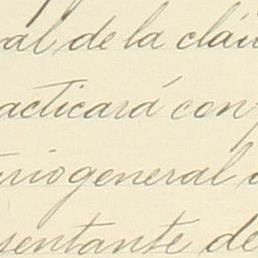 al de la cláu
acticará con
riogeneral
sentante de